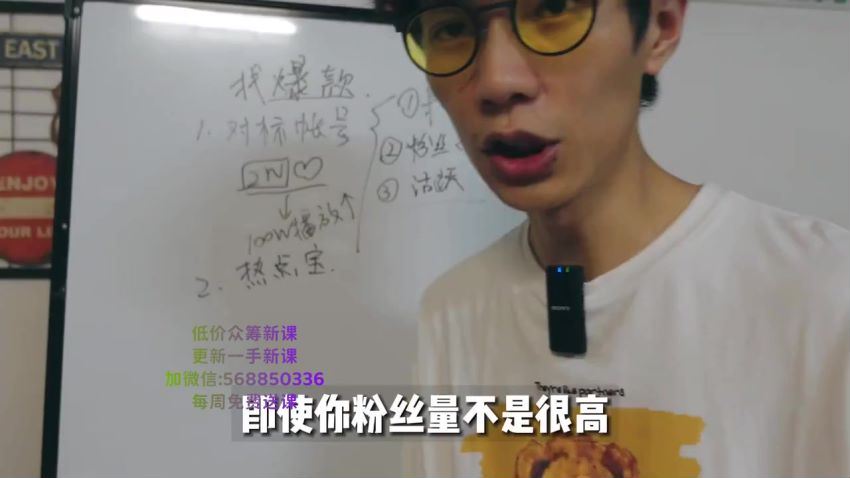 EAST
ENJOY
OUR LI
找爆款
1. 对标帐号
2W♡
100W播放↑
2. 热点宝
①
②粉丝
③活跃
SONY
They're like partners
低价众筹新课
更新一手新课
加微信:568850336
每周免费送课
即使你粉丝量不是很高